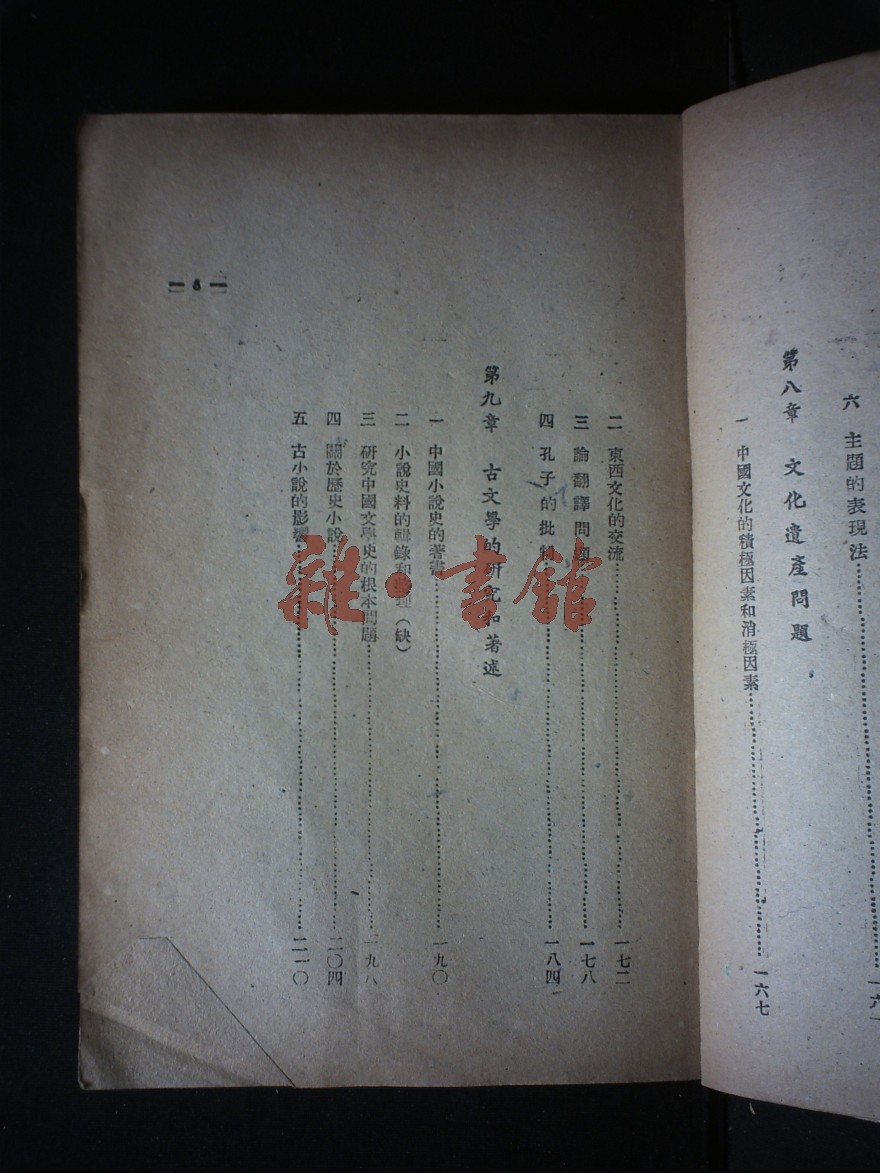 六 主題的表現法
第八章 文化遺產問題
一 中國文化的積極因素和消極因素 一六七
二 東西文化的交流 一七二
三 論翻譯問題 一七八
四 孔子的批判 一八四
第九章 古文學的研究和著述
一 中國小說史的著書 一九〇
二 小說史料的輯錄和整理(缺)
三 研究中國文學史的根本問題 一九八
四 關於歷史小說 二〇四
五 古小說的影響 二一〇
雜·書館